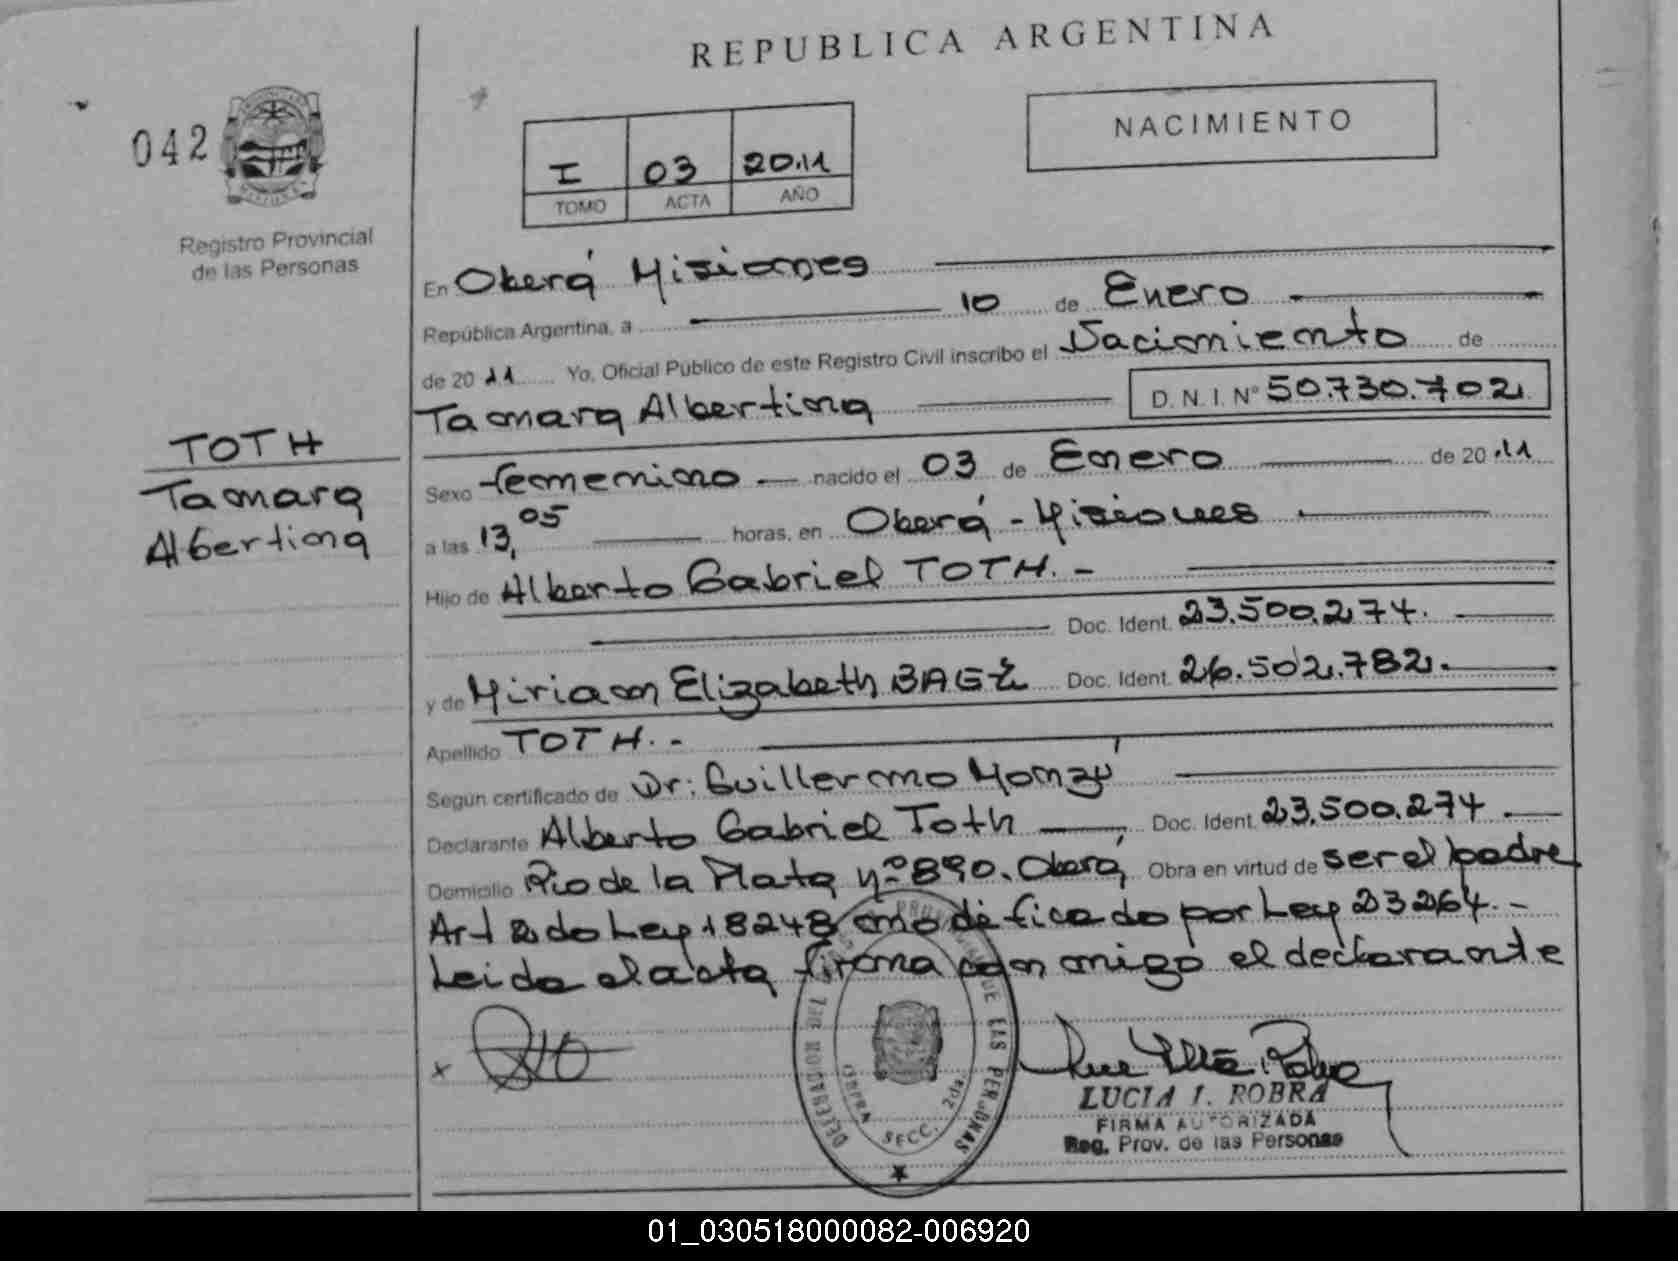 REPUBLICA ARGENTINA
042
NACIMIENTO
I 03 20.11
TOMO ACTA AÑO
Registro Provincial
de las Personas
En Oberá Misiones
República Argentina, a 10 de Enero
de 20 11 Yo, Oficial Público de este Registro Civil inscribo el Nacimiento de
Tamara Albertina D. N. I. N° 50.730.702.
TOTH
Tamara
Albertina
Sexo femenino nacido el 03 de Enero de 20 .11
a las 13,05 horas, en Oberá - Misiones
Hijo de Alberto Gabriel TOTH. -
Doc. Ident. 23.500.274.
y de Miriam Elizabeth Doc. Ident. 26.502.782.
Apellido TOTH. -
Según certificado de Dr: Guillermo
Declarante Alberto Gabriel Toth Doc. Ident. 23.500.274
Domicilio Rio de la Plata nº 890. Oberá Obra en virtud de ser el padre
Art 2do Ley 18248 modificado por Ley 23264. -
Leida el acta firma con migo el declarante
x
DELEGACION DEL REGISTRO PROVINCIAL DE LAS PERSONAS
OBERA SECC. 2da.
LUCIA I. ROBRA
FIRMA AUTORIZADA
Reg. Prov. de las Personas
01_030518000082-006920